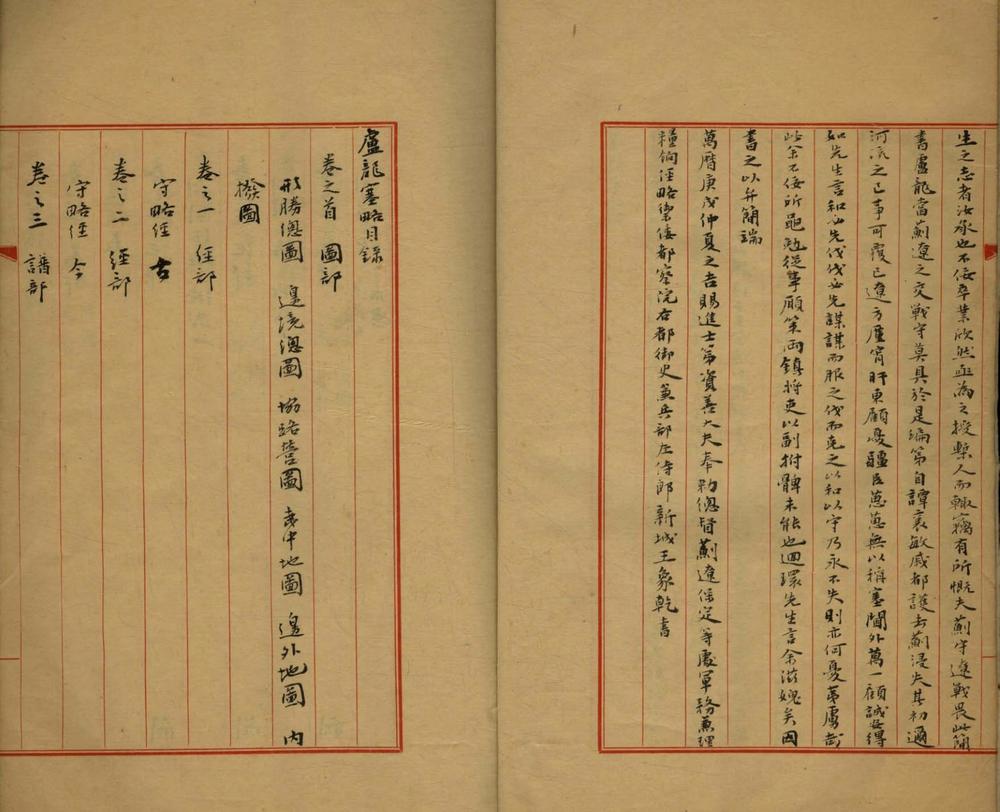 生之志者汝承也不佞卒業欣然亟為之授槧人而輙竊有所慨夫薊守遼戰畏此簡
書盧龍當薊遼之交戰守莫具於是編第自譚襄敏戚都護去薊浸失其初邇
河流之已事可覆已遼方厪宵旰東顧憂疆臣葸葸無以稱塞閫外萬一顧誠得
如先生言和必先伐伐必先謀謀而服之伐而克之以和以守乃永不失則亦何憂夷虜哉
此余不佞所黽勉從事願策兩鎮將吏以副拊髀未能也迴環先生言余滋媿矣因
書之以弁簡端
萬曆庚戌仲夏之吉賜進士第資善大夫奉勅總督薊遼保定等處軍務兼理
糧餉經略禦倭都察院右都御史兼兵部左侍郎新城王象乾書
盧龍塞略目錄
卷之首 圖部
形勝總圖 邊境總圖 協路營圖 夷中地圖 邊外地圖 內
撥圖
卷之一 經部
守略經 古
卷之二 經部
守略經 今
卷之三 譜部